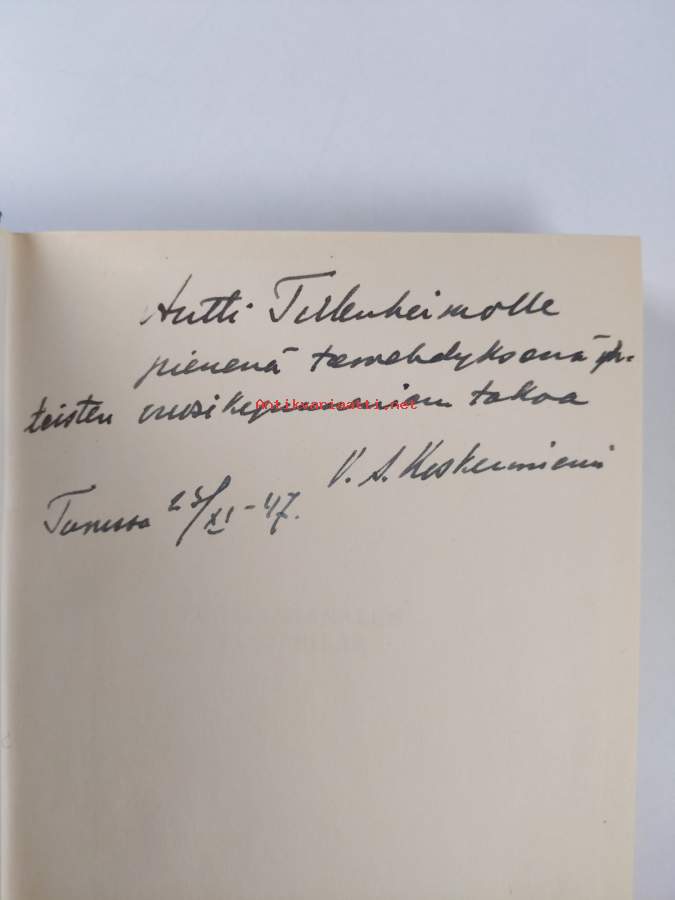 Antti Tulenheimolle
pienenä tervehdyksenä yh-
teisten vuosikymmenien takaa
Antikvariaatti.net
V. A. Koskenniemi
Turussa 23/XI -47.